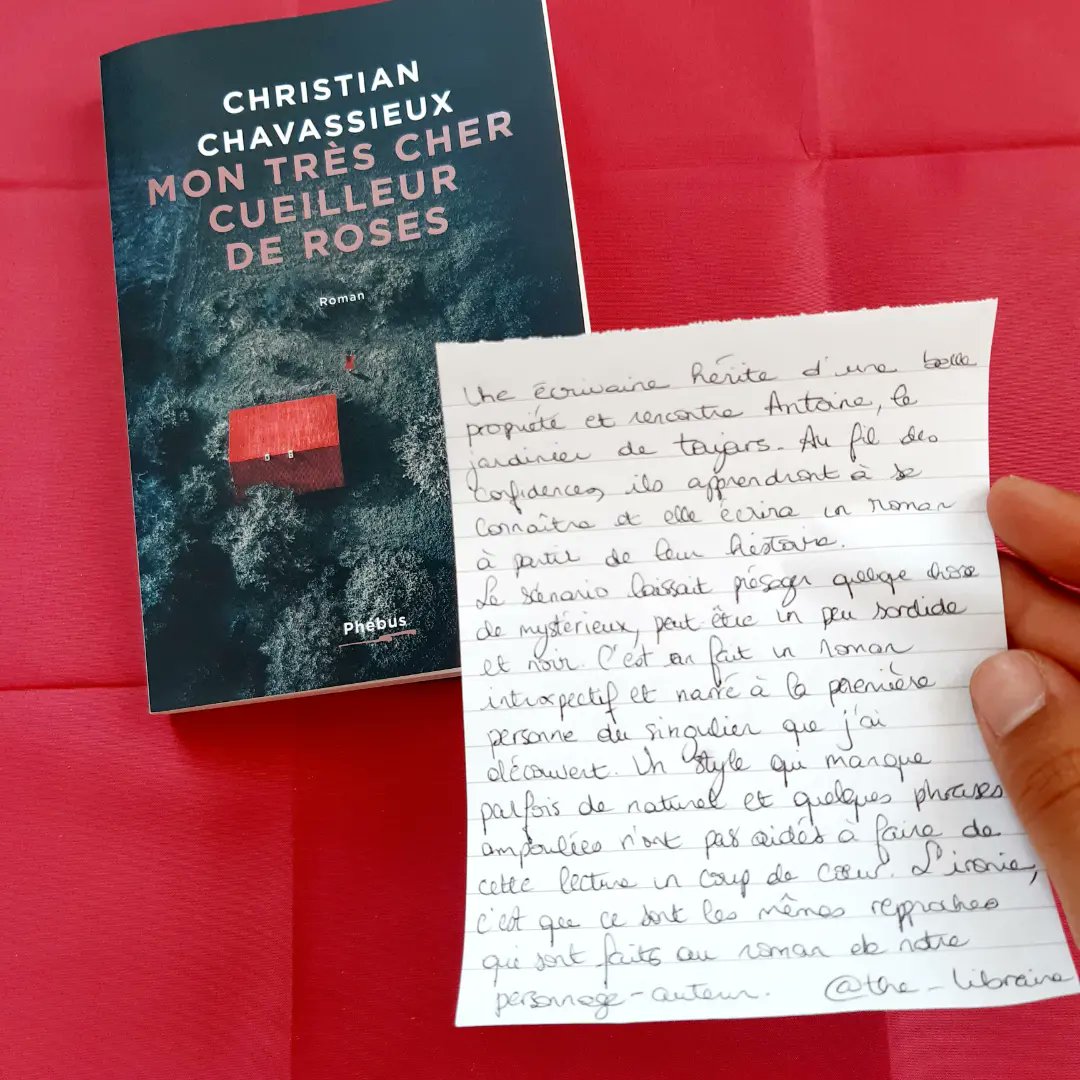 CHRISTIAN
CHAVASSIEUX
MON TRÈS CHER
CUEILLEUR
DE ROSES
Roman
Phébus
Une écrivaine hérite d'une belle
propriété et rencontre Antoine, le
jardinier de toujours. Au fil des
confidences, ils apprendront à se
connaître et elle écrira un roman
à partir de leur histoire.
Le scénario laissait présager quelque chose
de mystérieux, peut être un peu sordide
et noir. C'est en fait un roman
introspectif et narré à la première
personne du singulier que j'ai
découvert. Un style qui manque
parfois de naturel et quelques phrases
ampoulées n'ont pas aidés à faire de
cette lecture un coup de cœur. L'ironie,
c'est que ce sont les mêmes reproches
qui sont faits au roman de notre
personnage-auteur. @the_libraire